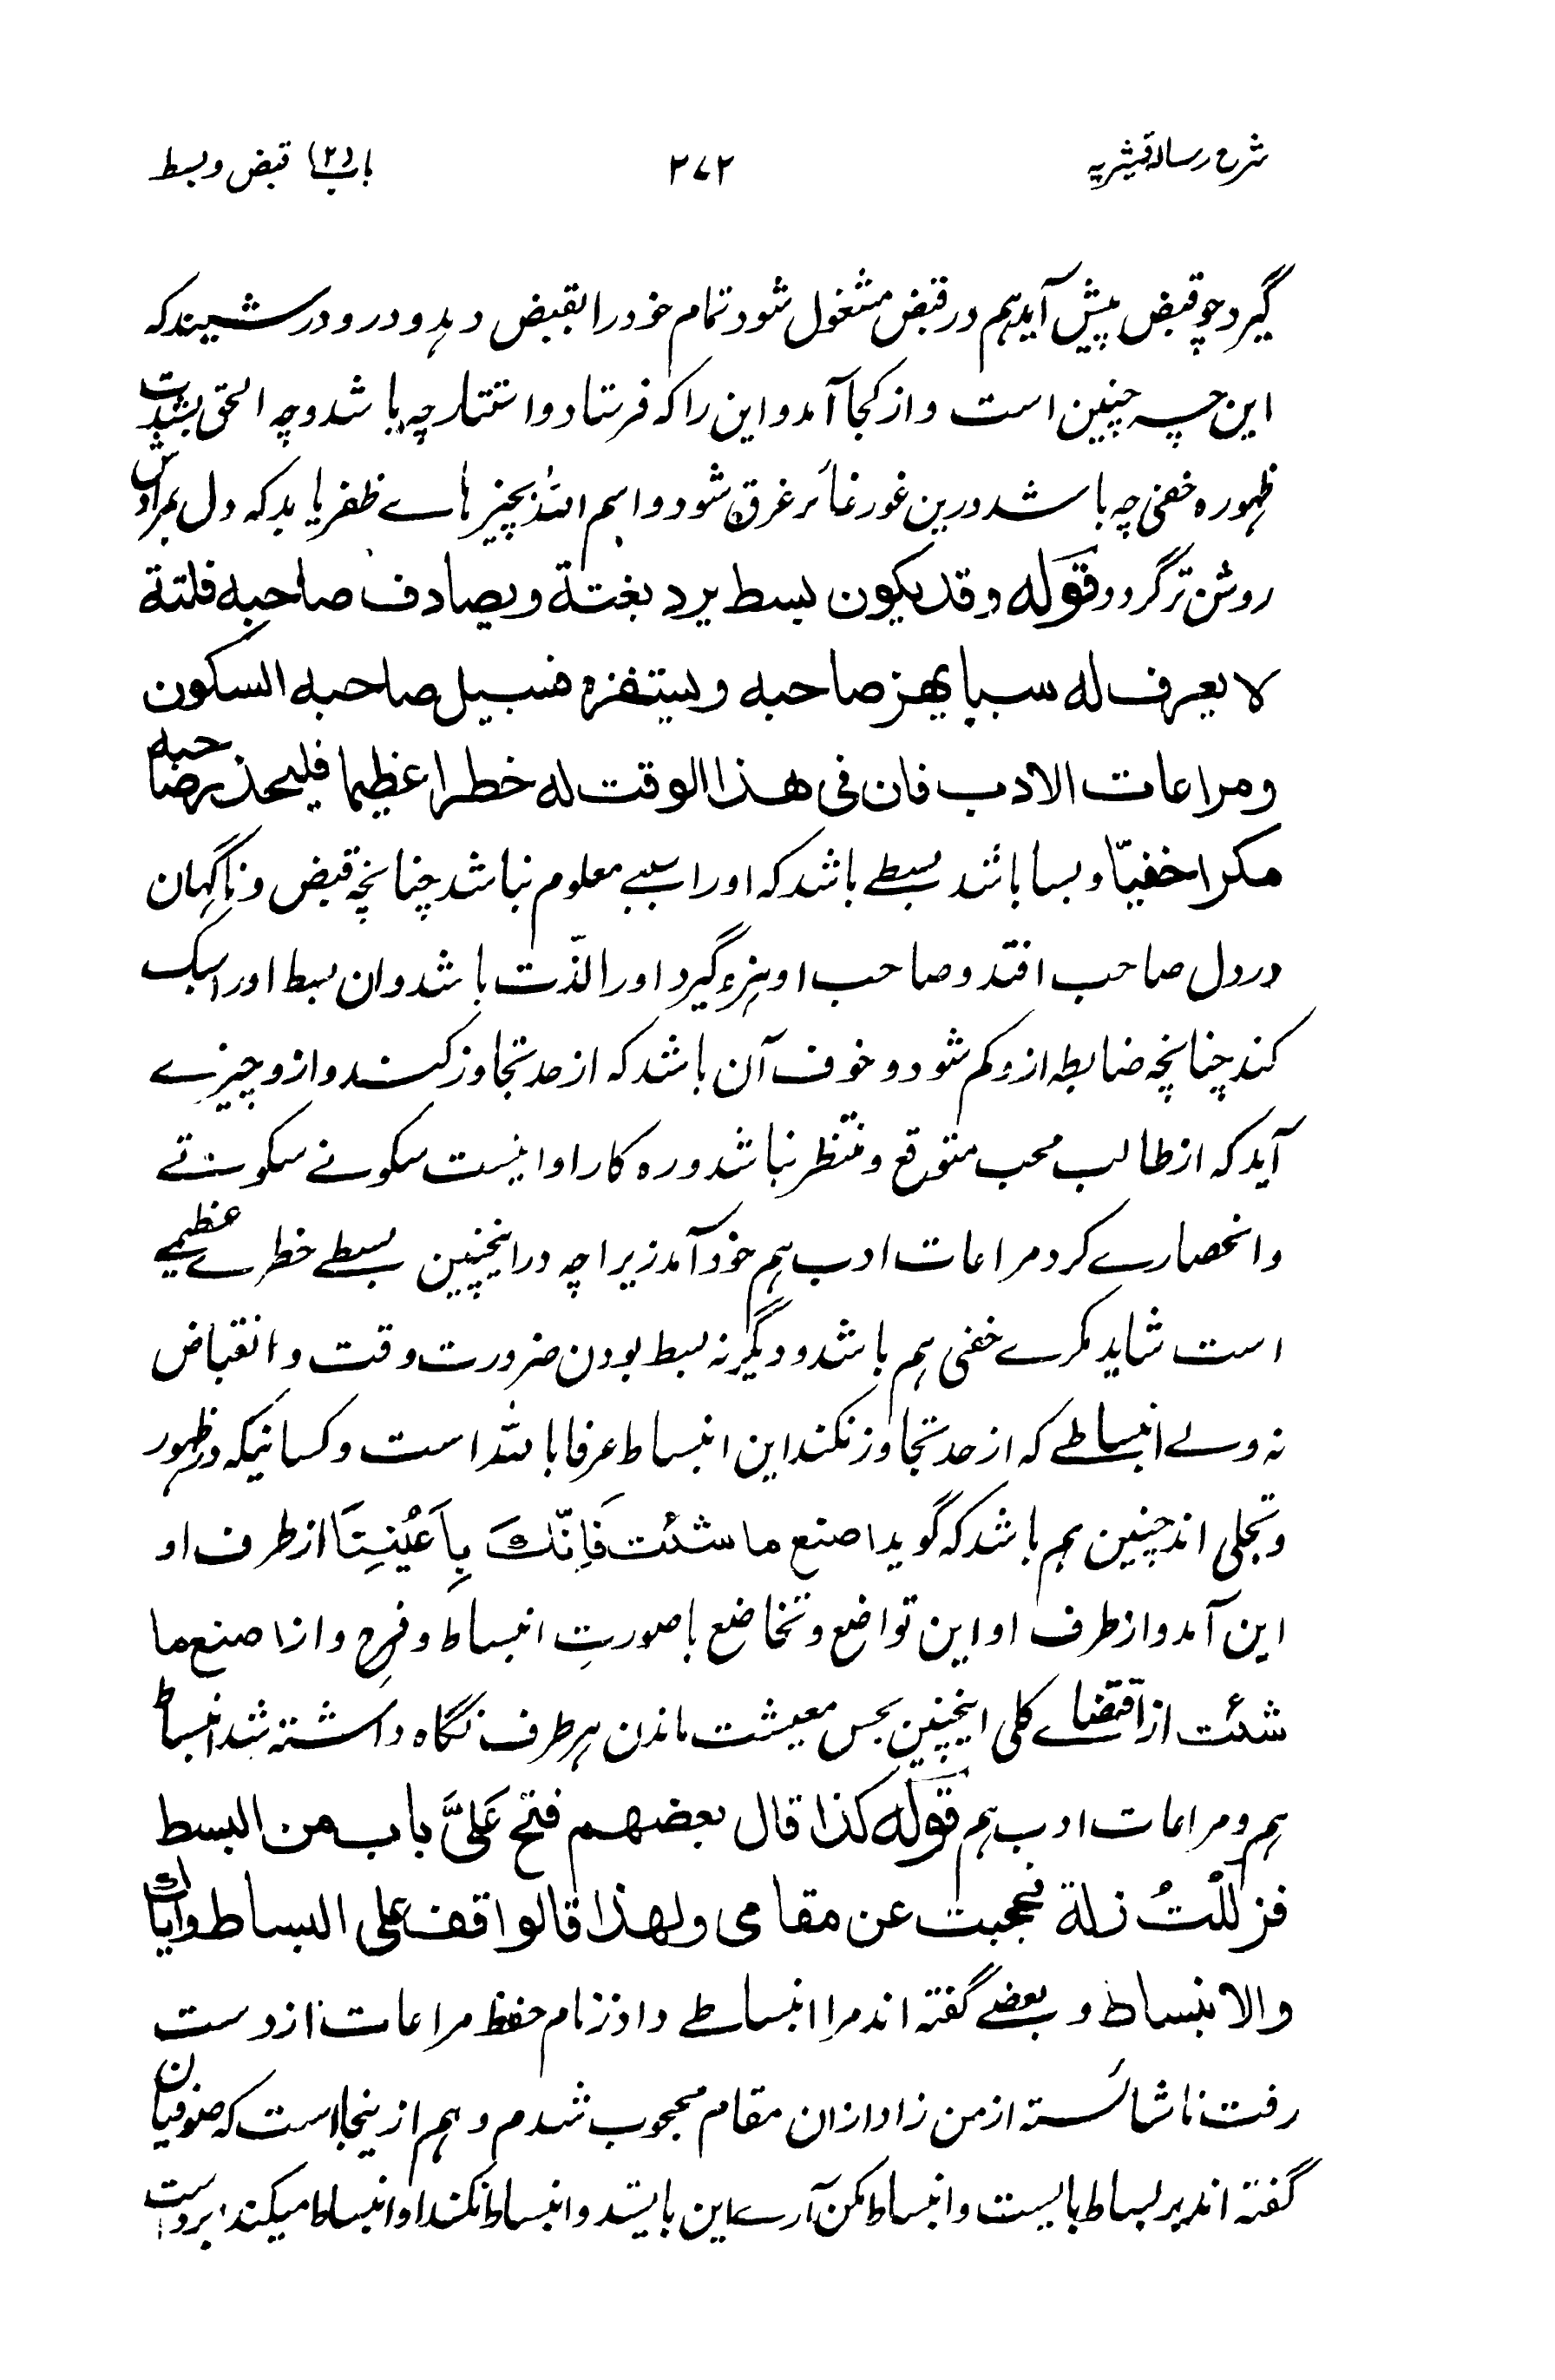 شرح رسالہ قشیریہ ۲۷۲ باب (۲) قبض و بسط
گیرد چو قبض پیش آید ہم در قبض مشغول شود تمام خود را بقبض دہد و درو در شیند کہ
این چہ چنین است و از کجا آمد و این را کہ فرستاد و استتار چہ باشد و چہ الحق بشدت
ظہورہ خفی چہ باشد درین غور غائر غرق شود و اسم اللہ بچیز ہاے ظفر یابد کہ دل بمرادش
روشن تر گردد و قوله وقد یکون بسط یرد بغتة ویصادف صاحبه فلتة
لا یعرف له سببا یهز صاحبه ویستفزه فسبیل صاحبه السکون
ومراعات الادب فان فی هذا الوقت له خطرا عظیما فلیحذر صاحبه
مکرا خفیّا و بسا باشد بسطے باشد کہ او را سببے معلوم نباشد چنانچہ قبض و ناگہان
در دل صاحب افتد و صاحب او ہزہ گیرد او را لذّت باشد وان بسط او را سبک
کند چنانچہ ضابطہ ازو کم شود و خوف آن باشد کہ از حد تجاوز کند و ازو چیزے
آید کہ از طالب محب متوقع و منتظر نباشد و رہ کار او اینست سکونے سکوتے
و انحصارے کرد مراعات ادب ہم خود آمد زیرا چہ در اینچنین بسطے خطرے عظیمے
است شاید مکرے خفی ہم باشد و دیگر نہ بسط بودن ضرورت وقت و انقباض
نہ ولے انبساطے کہ از حد تجاوز نکند این انبساط عرفا باللہ است و کسانیکہ در ظہور
و تجلی اند چنین ہم باشد کہ گوید اصنع ما شئت فَاِنَّكَ بِاَعْیُنِنَا از طرف او
این آمد و از طرف او این تواضع و تخاضع با صورتِ انبساط و فرح و از اصنع ما
شئت از اقتضاے کلی اینچنین بحس معیشت ماندن ہر طرف نگاہ داشتہ شد انبساط
ہم و مراعات ادب ہم قوله کذا قال بعضهم فتح عَلَیَّ باب من البسط
فزللتُ زلة فحجبت عن مقامی ولهذا قالوا قف علی البساط وایاك
والانبساط و بعضے گفتہ اند مرا انبساطے داد زمام حفظ مراعات از دست
رفت ناشائستہ از من زاد ازان مقام محجوب شدم و ہم از ینجا است کہ صوفیان
گفتہ اند بر بساط بایست و انبساط مکن آرے این بایستد و انبساط نکند او انبساط میکند